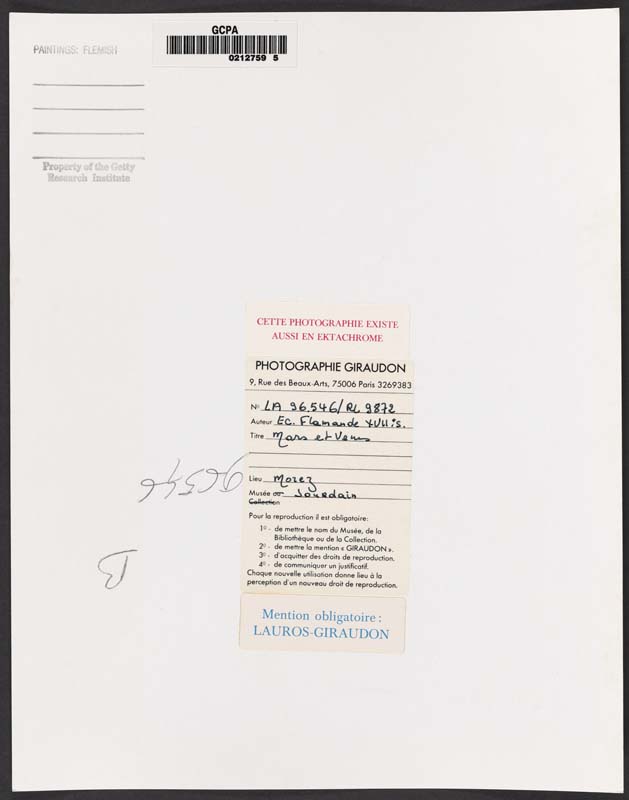 PAINTINGS: FLEMISH
GCPA
0212759 5
Property of the Getty
Research Institute
CETTE PHOTOGRAPHIE EXISTE
AUSSI EN EKTACHROME
PHOTOGRAPHIE GIRAUDON
9, Rue des Beaux-Arts, 75006 Paris 3269383
No LA 96.546/RL 9872
Auteur Ec. Flamande XVII s.
Titre Mars et Venus
Lieu Morez
Musée ou Jourdain
Collection
Pour la reproduction il est obligatoire:
1o - de mettre le nom du Musée, de la
Bibliothèque ou de la Collection.
2o - de mettre la mention « GIRAUDON ».
3o - d'acquitter des droits de reproduction.
4o - de communiquer un justificatif.
Chaque nouvelle utilisation donne lieu à la
perception d'un nouveau droit de reproduction.
Mention obligatoire :
LAUROS-GIRAUDON
96546
B